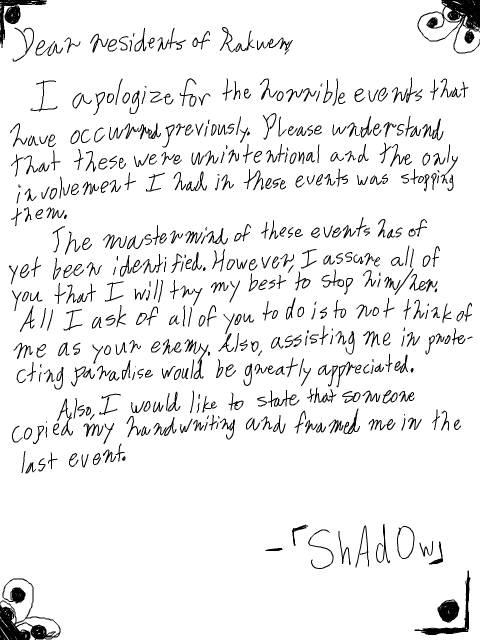 Dear residents of Rakuen,
I apologize for the horrible events that
have occurred previously. Please understand
that these were unintentional and the only
involvement I had in these events was stopping
them.
The mastermind of these events has of
yet been identified. However, I assure all of
you that I will try my best to stop him/her.
All I ask of all of you to do is to not think of
me as your enemy. Also, assisting me in prote-
cting paradise would be greatly appreciated.
Also, I would like to state that someone
copied my handwriting and framed me in the
last event.
-「ShAdOw」